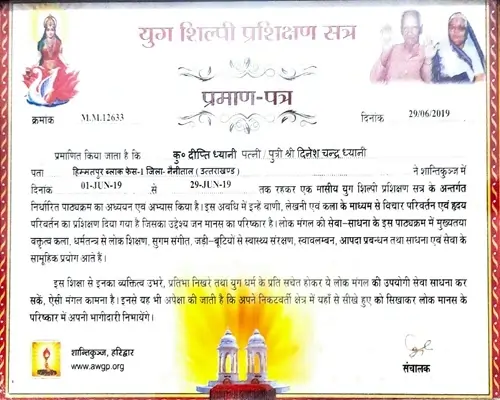 युग शिल्पी प्रशिक्षण सत्र
प्रमाण-पत्र
क्रमाक M.M.12633 दिनांक 29/06/2019
प्रमाणित किया जाता है कि कु० दीप्ति ध्यानी पत्नी / पुत्री श्री दिनेश चन्द्र ध्यानी
पता हिम्मतपुर ब्लाक फेस-1 जिला- नैनीताल ( उत्तराखण्ड ) ने शान्तिकुञ्ज में
दिनांक 01-JUN-19 से 29-JUN-19 तक रहकर एक मासीय युग शिल्पी प्रशिक्षण सत्र के अन्तर्गत
निर्धारित पाठ्यक्रम का अध्ययन एवं अभ्यास किया है। इस अवधि में इन्हें वाणी, लेखनी एवं कला के माध्यम से विचार परिवर्तन एवं हृदय
परिवर्तन का प्रशिक्षण दिया गया है जिसका उद्देश्य जन मानस का परिष्कार है। लोक मंगल की सेवा-साधना के इस पाठ्यक्रम में मुख्यतया
वक्तृत्व कला, धर्मतन्त्र से लोक शिक्षण, सुगम संगीत, जड़ी-बूटियों से स्वास्थ्य संरक्षण, स्वावलम्बन, आपदा प्रबन्धन तथा साधना एवं सेवा के
सामूहिक प्रयोग आते हैं।
इस शिक्षा से इनका व्यक्तित्व उभरे, प्रतिभा निखरे तथा युग धर्म के प्रति सचेत होकर ये लोक मंगल की उपयोगी सेवा साधना कर
सकें, ऐसी मंगल कामना है। इनसे यह भी अपेक्षा की जाती है कि अपने निकटवर्ती क्षेत्र में यहाँ से सीखे हुए को सिखाकर लोक मानस के
परिष्कार में अपनी भागीदारी निभायेंगे।
शान्तिकुञ्ज, हरिद्वार
www.awgp.org
संचालक